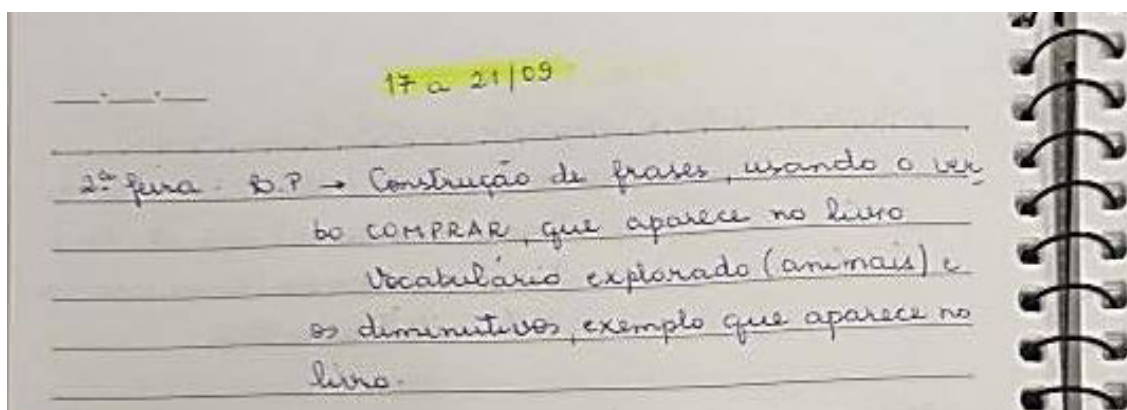 17 a 21/09
2ª feira. D.P → Construção de frases, usando o ver-
bo COMPRAR, que aparece no livro
Vocabulário explorado (animais) e
os diminutivos, exemplo que aparece no
livro.